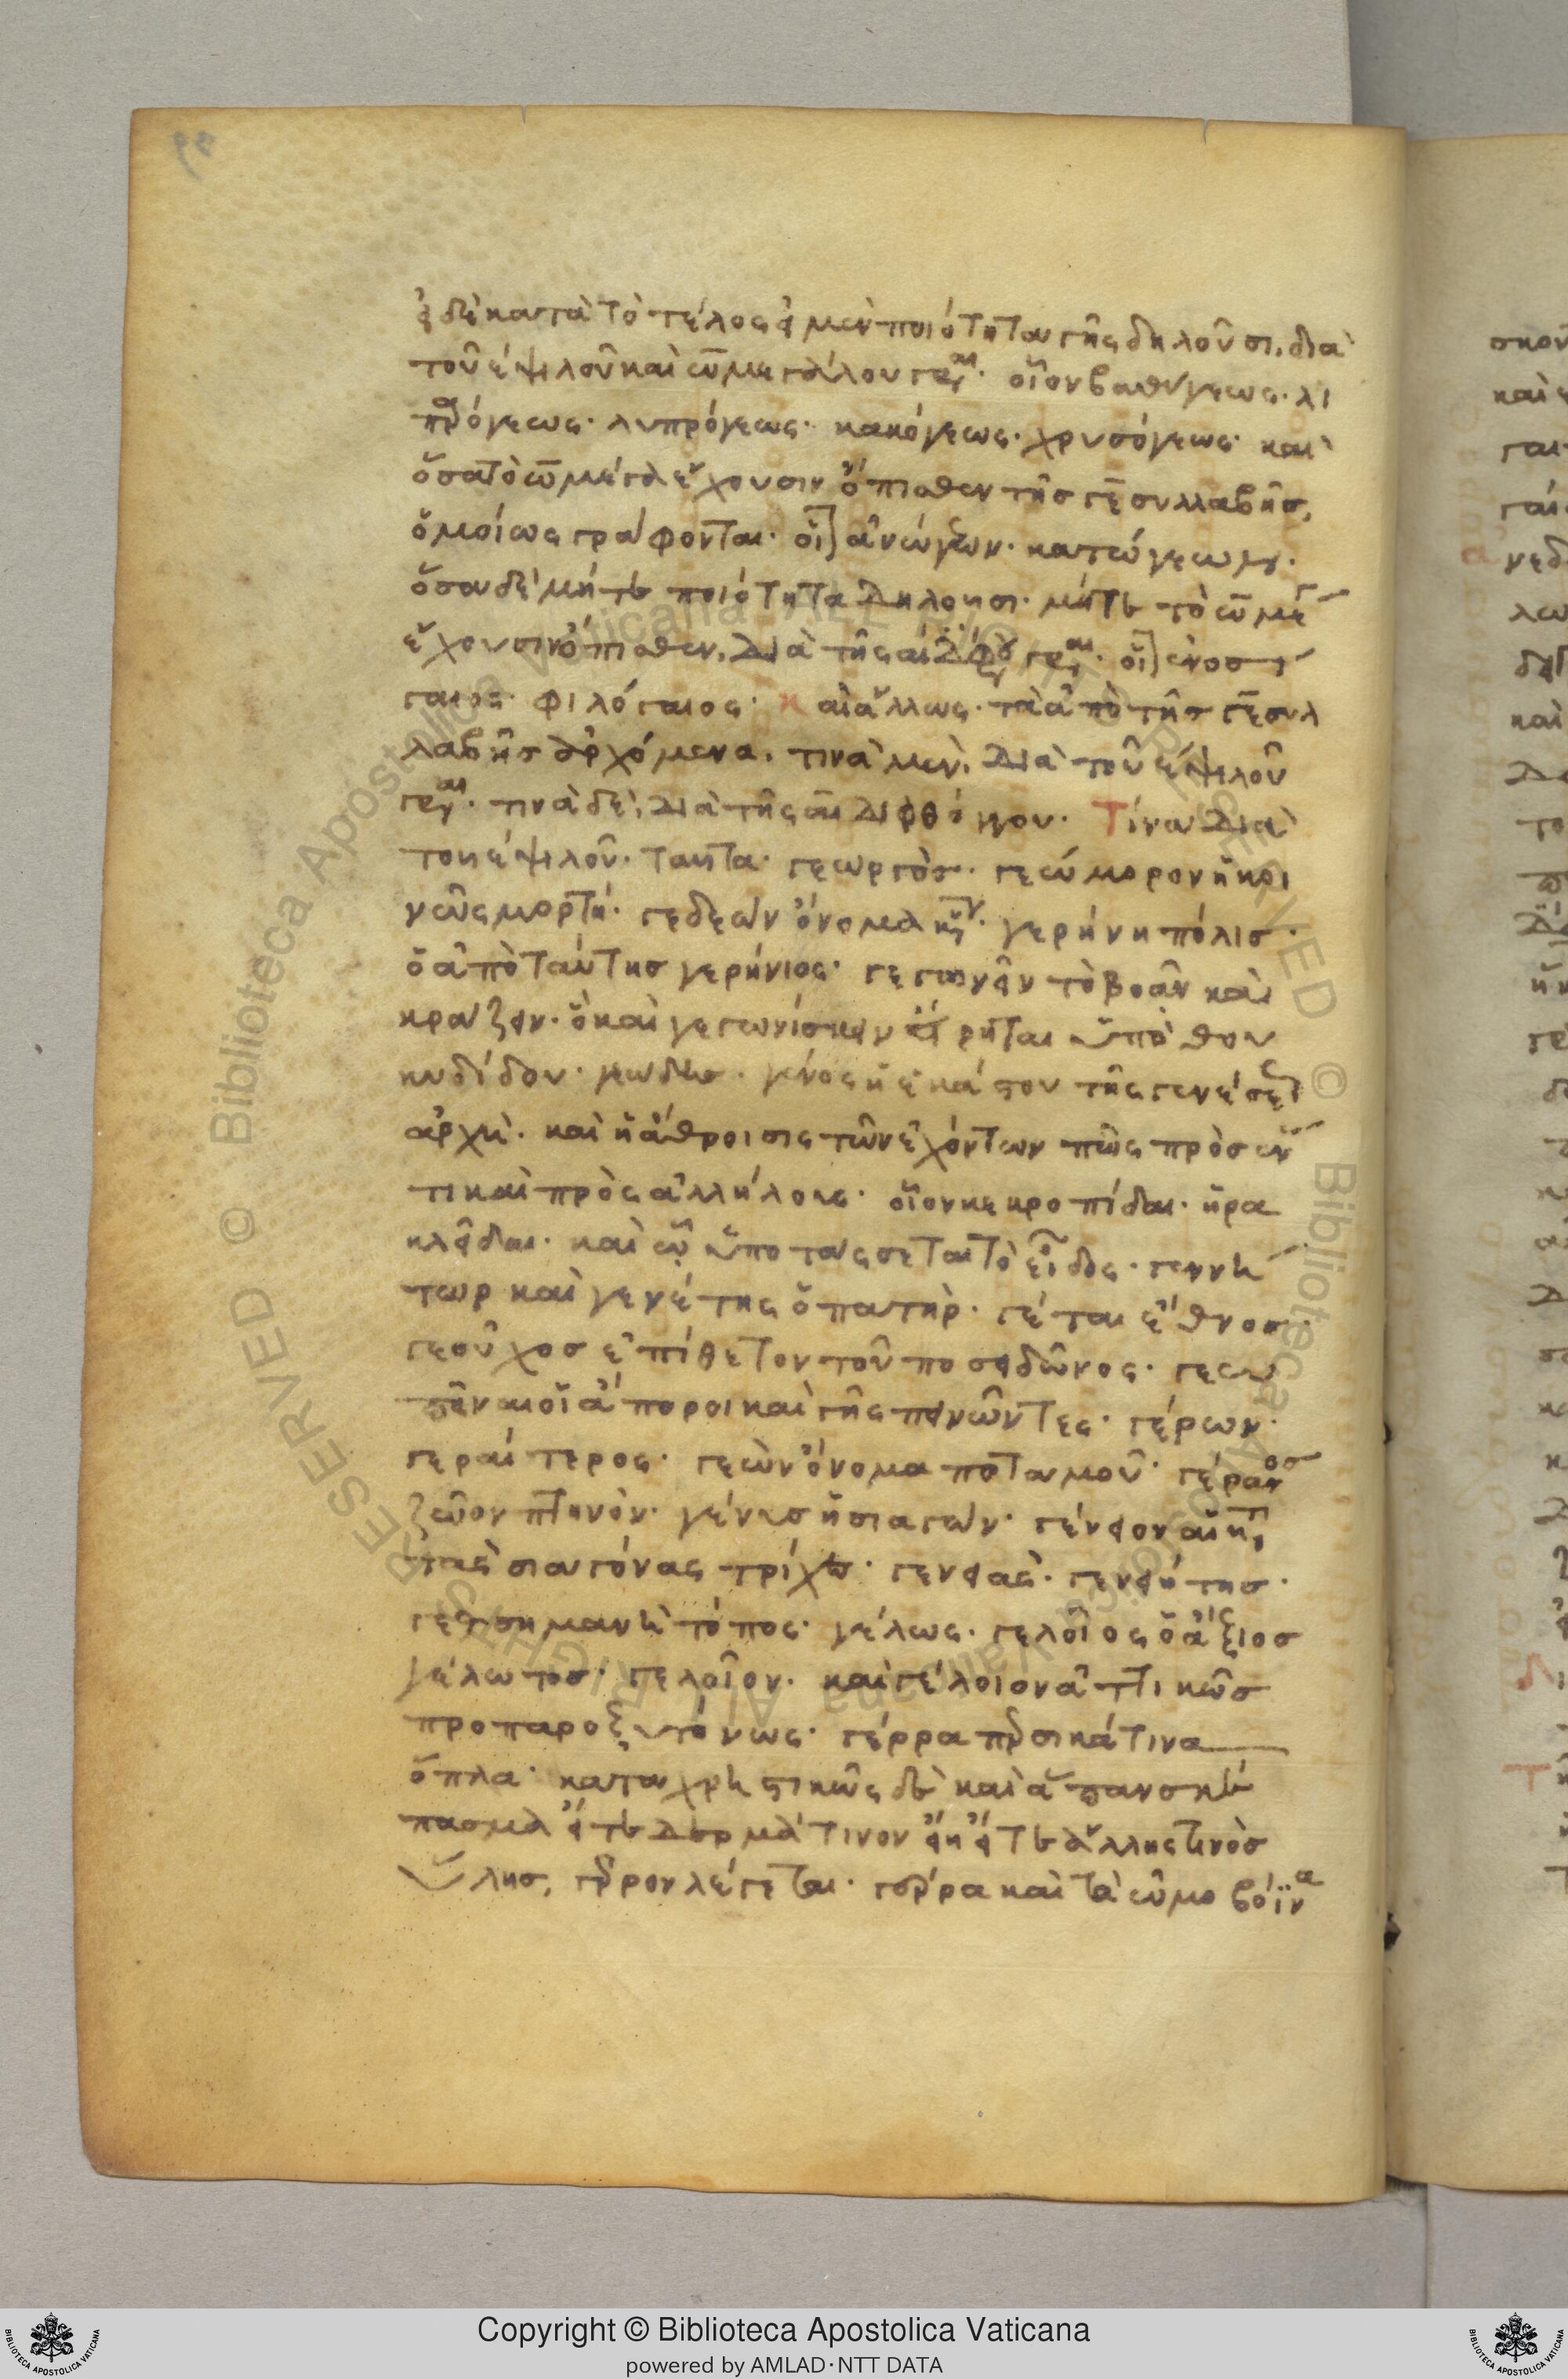 εἰ δὲ κατὰ τὸ τέλος εἰ μὲν ποιότητα γῆς δηλοῦσι, διὰ
τοῦ ἐψιλοῦ καὶ ω̄ μεγάλου γρ αι· οἷον βαθύγεως· λι
πόγεως· λυπρόγεως· κακόγεως· χρυσόγεως· καὶ
ὅσα τὸ ω̄ μέγα ἔχουσιν ὄπισθεν τῆς γε συλλαβῆς,
ὁμοίως γράφονται· οἷ ἀνώγεων· κατώγεων
ὅσα δὲ μήτε ποιότητα δηλοῦσι· μήτε τὸ ω̄ μέγ
ἔχουσιν ὄπισθεν, διὰ τῆς αι διφθ γρ αι· οἷ ἐνοσί
γαιος· φιλόγαιος· καὶ ἄλλως· τὰ ἀπὸ τῆς γε συλ
λαβῆς ἀρχόμενα, τινὰ μὲν, διὰ τοῦ ἐψιλοῦ
γρ αι· τινὰ δὲ, διὰ τῆς αι διφθόγγου· Τίνα διὰ
τοῦ ἐψιλοῦ· ταῦτα· γεωργὸς· γεώμορον ἡ κοι
νῶς μορτή· γεδεὼν ὄνομα κύρ· γερήνη πόλις·
ὁ ἀπὸ ταύτης γερήνιος· γεγωνεῖν τὸ βοᾶν καὶ
κράζειν· ὃ καὶ γεγωνίσκειν εἴρηται ὑπὸ θου
κυδίδου· γένος ἡ ἑκάστου τῆς γενέσε
ἀρχὴ· καὶ ἡ ἄθροισις τῶν ἐχόντων πῶς πρὸς ἕν
τι καὶ πρὸς ἀλλήλους· οἷον κεκροπίδαι· ἡρα
κλεῖδαι· καὶ ὧ ὑποτάσσεται τὸ εἶδος· γεννή
τωρ καὶ γενέτης ὁ πατὴρ· γέται ἔθνος·
γεοῦχος ἐπίθετον τοῦ ποσειδῶνος· γεω
πεῖναι οἱ ἄποροι καὶ γῆς πεινῶντες· γέρων·
γεραίτερος· γεὼν ὄνομα ποταμοῦ· γέρανος
ζῶον πτηνὸν· γένυς ἡ σιαγών· γένειον αἱ κ
τὰς σιαγόνας τρίχες· γενεὰς· γενειήτης·
γεθσημανῆ τόπος· γέλως· γελοῖος ὁ ἄξιος
γέλωτος· γελοῖον· καὶ γέλοιον ἀττικῶς
προπαροξυτόνως· γέρρα περσικά τινα
ὅπλα· καταχρηστικῶς δὲ καὶ ἅπαν σκέ
πασμα εἴτε δερμάτινον εἴη εἴτε ἄλλης τινὸς
ὕλης, γέρρον λέγεται· γέρρα καὶ τὰ ὠμοβόϊνα